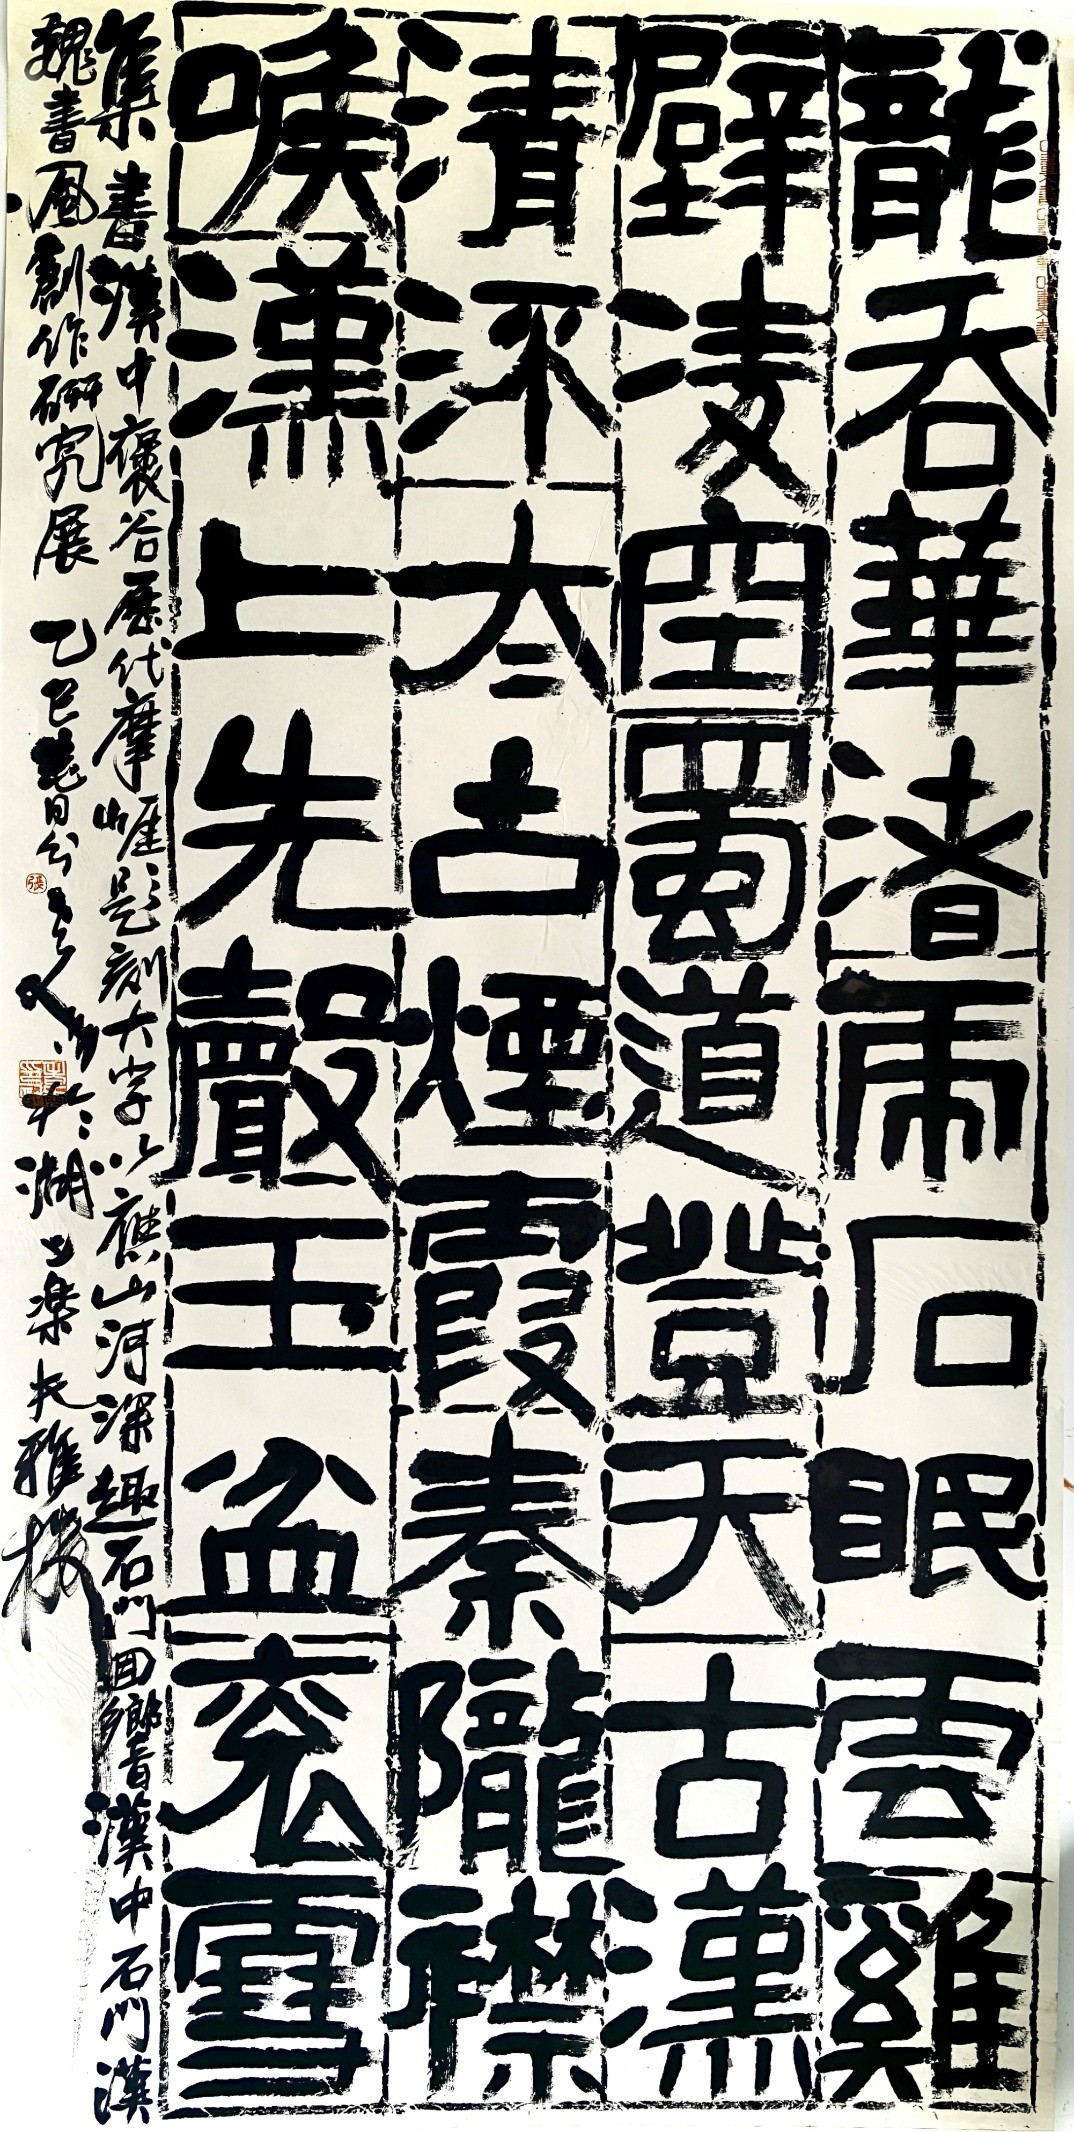 龍吞華渚虎石眠雲雞
壁凌空蜀道登天古漢
清太古煙霞秦隴襟
喉漢上先聲玉盆衮雪
集書漢中褒谷歷代摩崖題刻大字以應山河深趣石門回響漢中石門漢
魏書風創作研究展 乙巳春日於湖上樂天雅樓